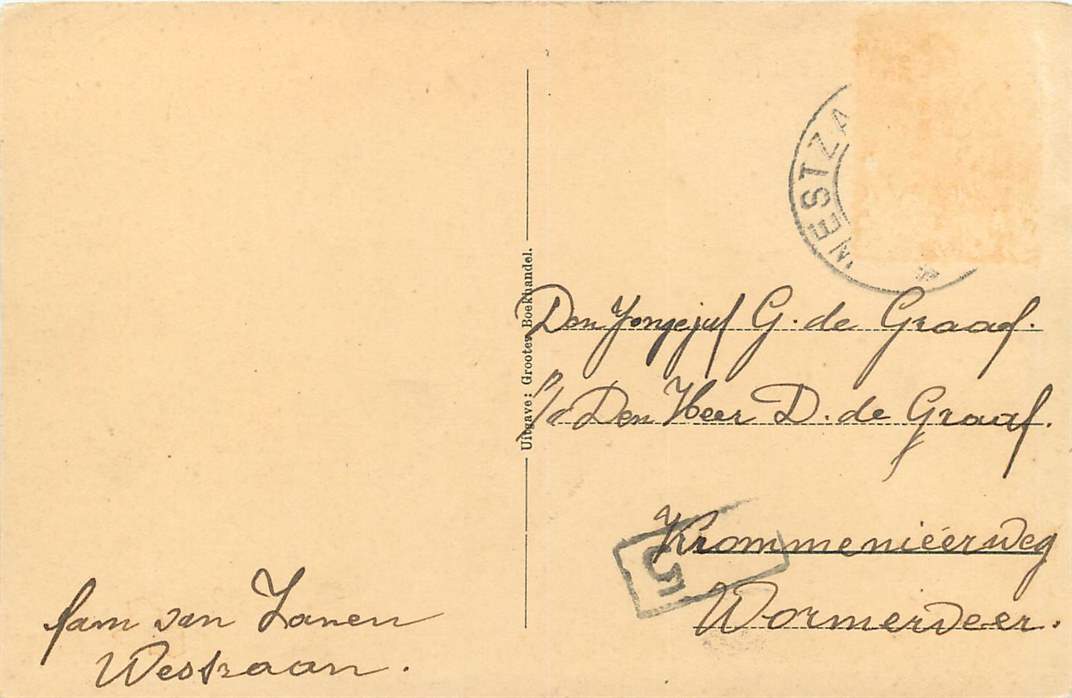 WESTZA
Uitgave: Grooter, Boekhandel.
Den Jongejuf G. de Graaf.
P/a Den Heer D. de Graaf.
Krommenieërweg
Wormerveer.
5
fam van Zanen
Westzaan.